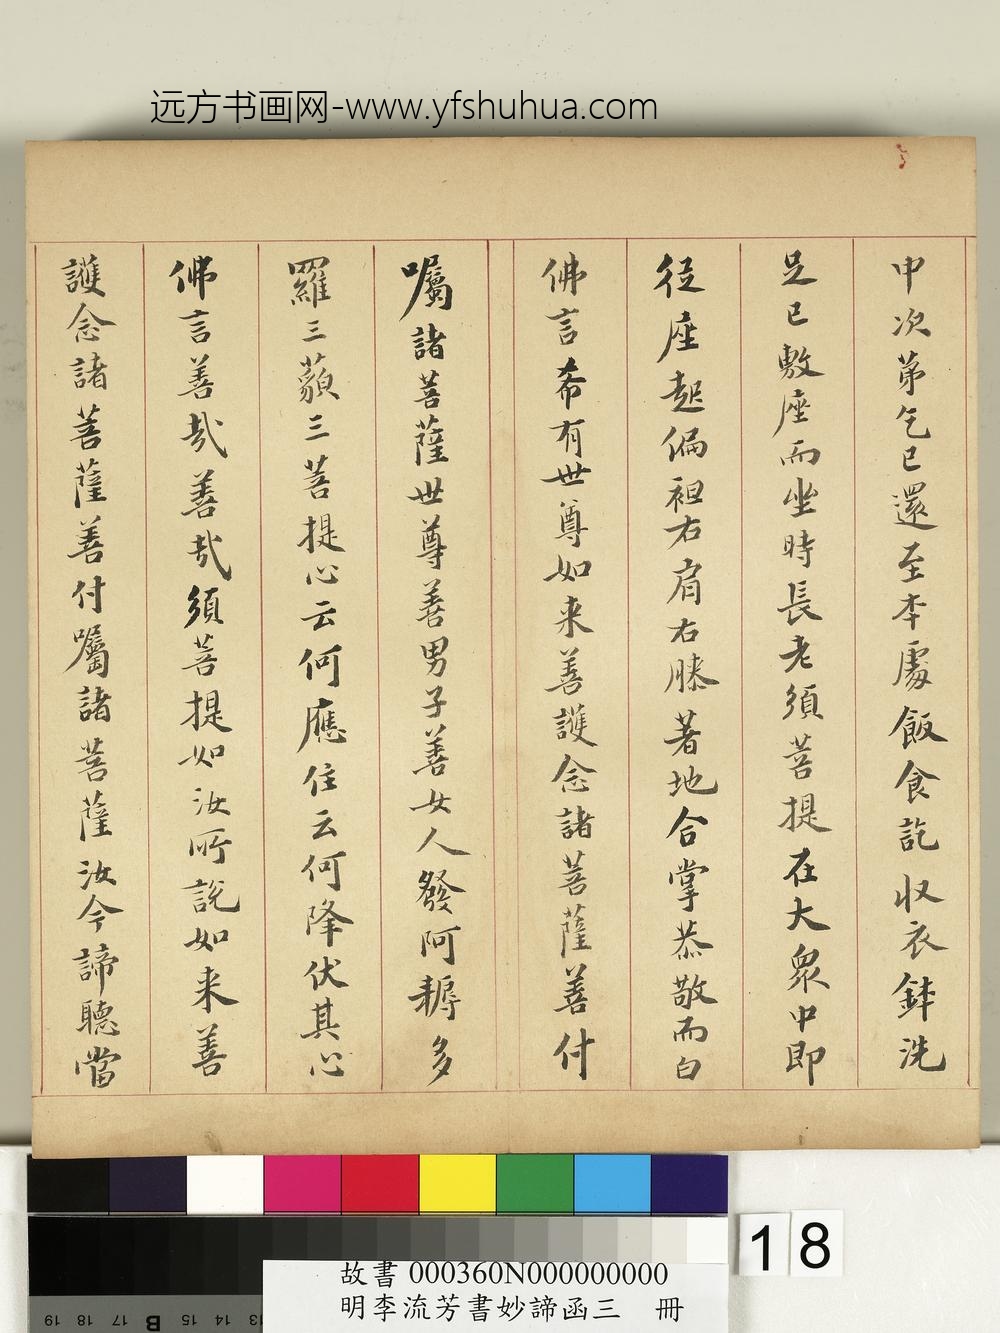 远方书画网-www.yfshuhua.com
中次苐乞已還至本處飯食訖収衣鉢洗
足已敷座而坐時長老須菩提在大衆中即
從座起偏袒右肩右膝著地合掌恭敬而白
佛言希有世尊如来善護念諸菩薩善付
囑諸菩薩世尊善男子善女人發阿耨多
羅三藐三菩提心云何應住云何降伏其心
佛言善哉善哉須菩提如汝所說如来善
護念諸菩薩善付囑諸菩薩汝今諦聽當
18
故書 000360N000000000
明李流芳書妙諦函三 冊
19 18 17 B 15 14 13